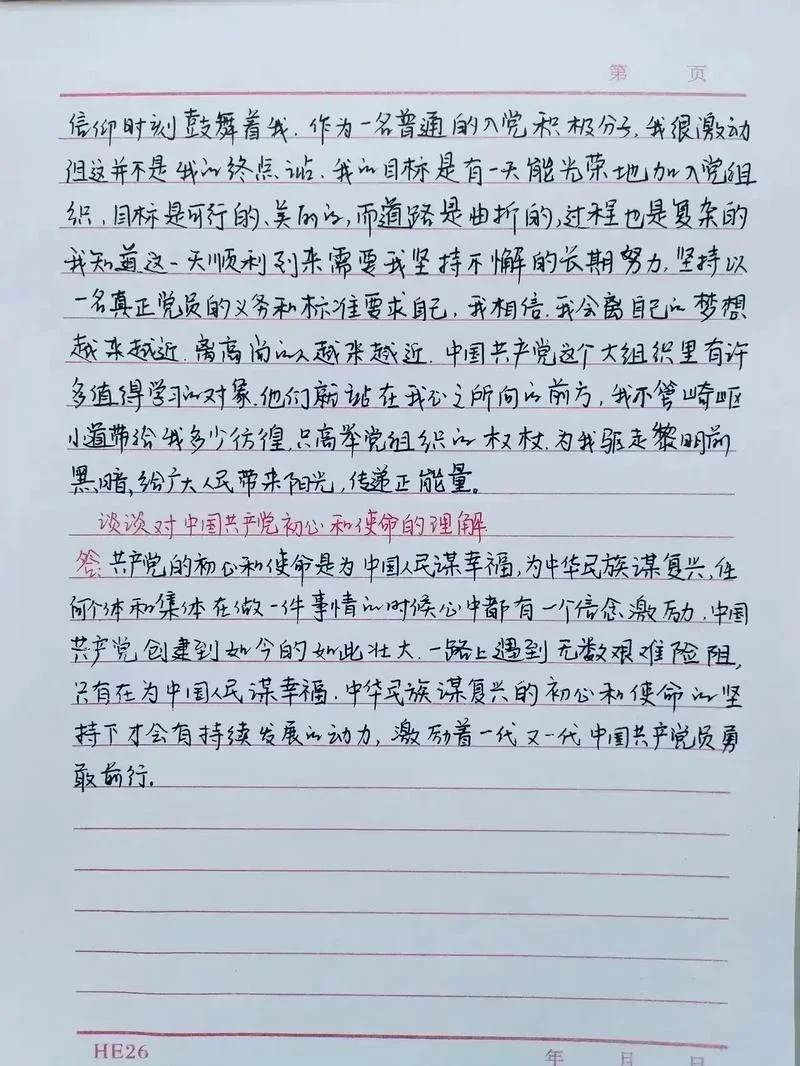 第 页
信仰时刻鼓舞着我.作为一名普通的入党积极分子,我很激动
但这并不是我的终点站.我的目标是有一天能光荣地加入党组
织,目标是可行的、美好的,而道路是曲折的,过程也是复杂的
我知道这一天顺利到来需要我坚持不懈的长期努力,坚持以
一名真正党员的义务和标准要求自己,我相信.我会离自己的梦想
越来越近.离高尚的人越来越近.中国共产党这个大组织里有许
多值得学习的对象.他们就站在我心之所向的前方,我不管崎岖
小道带给我多少彷徨.只高举党组织的权杖.为我驱走黎明前
黑暗,给广大人民带来阳光,传递正能量。
谈谈对中国共产党初心和使命的理解
答:共产党的初心和使命是为中国人民谋幸福,为中华民族谋复兴,任
何个体和集体在做一件事情的时候心中都有一个信念激励.中国
共产党创建到如今的如此壮大.一路上遇到无数艰难险阻,
只有在为中国人民谋幸福.中华民族谋复兴的初心和使命的坚
持下才会有持续发展的动力,激励着一代又一代中国共产党员勇
敢前行.
HE26
年 月 日